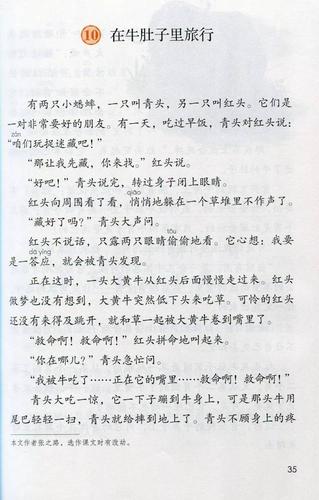 10 在牛肚子里旅行
有两只小蟋蟀，一只叫青头，另一只叫红头。它们是
一对非常要好的朋友。有一天，吃过早饭，青头对红头说：
zán
“咱们玩捉迷藏吧！”
“那让我先藏，你来找。”红头说。
“好吧！”青头说完，转过身子闭上眼睛。
qiāo
红头向周围看了看，悄悄地躲在一个草堆里不作声了。
“藏好了吗？”青头大声问。
tōu
红头不说话，只露两只眼睛偷偷地看。它心想：我要
dā yìng
是一答应，就会被青头发现。
正在这时，一头大黄牛从红头后面慢慢走过来。红头
做梦也没有想到，大黄牛突然低下头来吃草。可怜的红头
还没有来得及跳开，就和草一起被大黄牛卷到嘴里了。
“救命啊！救命啊！”红头拼命地叫起来。
“你在哪儿？”青头急忙问。
“我被牛吃了……正在它的嘴里……救命啊！救命啊！”
青头大吃一惊，它一下子蹦到牛身上，可是那头牛用
尾巴轻轻一扫，青头就给摔到地上了。青头不顾身上的疼
本文作者张之路，选作课文时有改动。
35